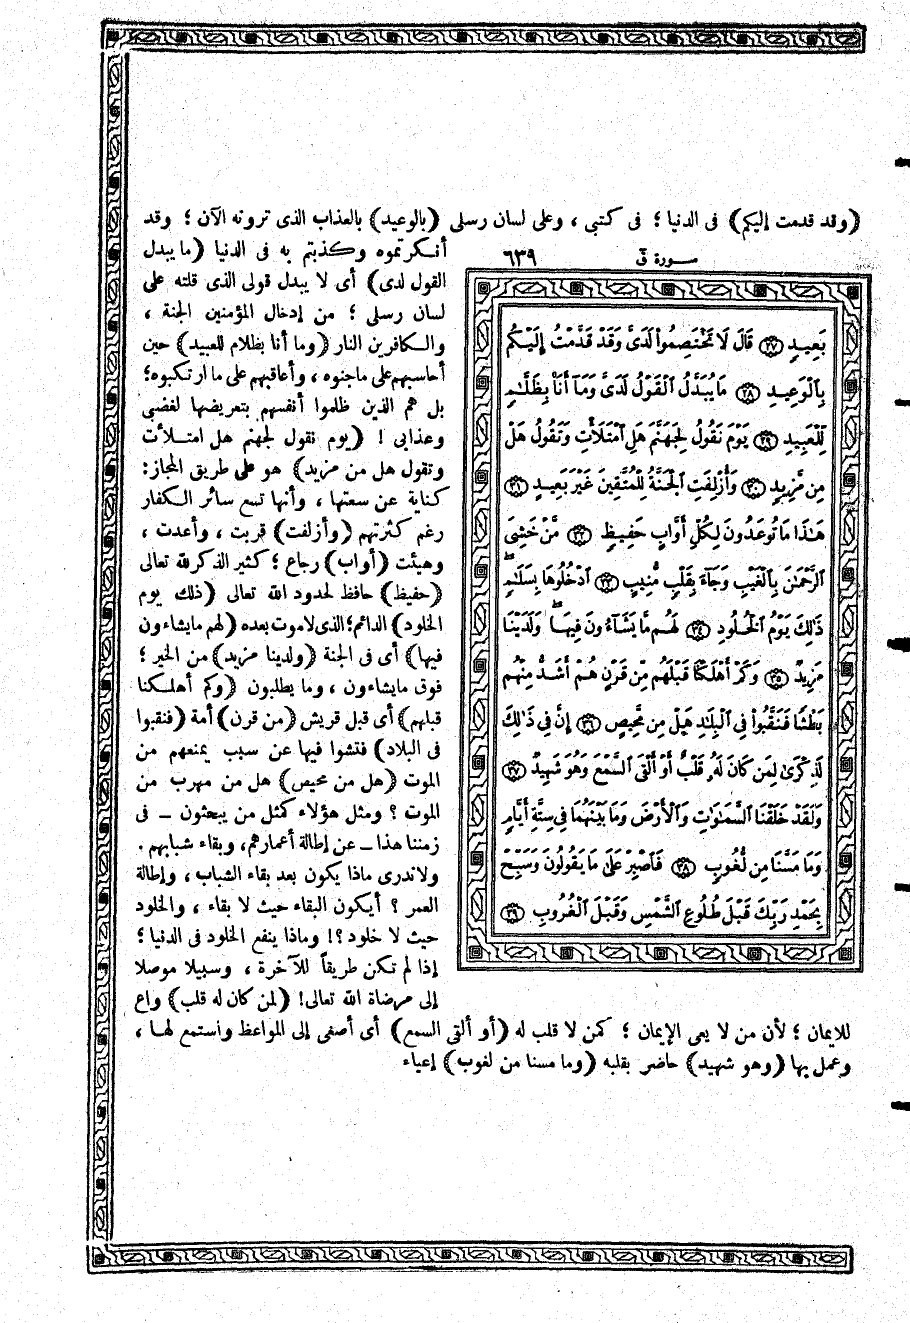 (وقد قدمت إليكم) فى الدنيا ؛ فى كتبى ، وعلى لسان رسلى (بالوعيد) بالعذاب الذى ترونه الآن ؛ وقد
أنكرتموه وكذبتم به فى الدنيا (ما يبدل
القول لدى) أى لا يبدل قولى الذى قلته على
لسان رسلى ؛ من إدخال المؤمنين الجنة ،
والكافرين النار (وما أنا بظلام للعبيد) حين
أحاسبهم على ماجنوه ، وأعاقبهم على ما ارتكبوه؛
بل هم الذين ظلموا أنفسهم بتعريضها لغضبى
وعذابى ! (يوم نقول لجهنم هل امتلأت
وتقول هل من مزيد) هو على طريق المجاز:
كناية عن سعتها ، وأنها تسع سائر الكفار
رغم كثرتهم (وأزلفت) قربت ، وأعدت ،
وهيئت (أواب) رجاع ؛ كثير الذكر لله تعالى
(حفيظ) حافظ لحدود الله تعالى (ذلك يوم
الخلود) الدائم؛ الذى لا موت بعده (لهم مايشاءون
فيها) أى فى الجنة (ولدينا مزيد) من الخير ؛
فوق مايشاءون ، وما يطلبون (وكم أهلكنا
قبلهم) أى قبل قريش (من قرن) أمة (فنقبوا
فى البلاد) فتشوا فيها عن سبب يمنعهم من
الموت (هل من محيص) هل من مهرب من
الموت ؟ ومثل هؤلاء كمثل من يبحثون ـ فى
زمننا هذا ـ عن إطالة أعمارهم، وبقاء شبابهم .
ولاندرى ماذا يكون بعد بقاء الشباب ، وإطالة
العمر ؟ أيكون البقاء حيث لا بقاء ، والخلود
حيث لا خلود ؟! وماذا ينفع الخلود فى الدنيا ؛
إذا لم تكن طريقاً للآخرة ، وسبيلا موصلا
إلى مرضاة الله تعالى! (لمن كان له قلب) واع
للإيمان ؛ لأن من لا يعى الإيمان ؛ كمن لا قلب له (أو ألقى السمع) أى أصغى إلى المواعظ واستمع لها ،
وعمل بها (وهو شهيد) حاضر بقلبه (وما مسنا من لغوب) إعياء
سورة ق ٦٣٩
بَعِيدٍ ٢٧ قَالَ لَا تَخْتَصِمُوا۟ لَدَىَّ وَقَدْ قَدَّمْتُ إِلَيْكُم
بِٱلْوَعِيدِ ٢٨ مَا يُبَدَّلُ ٱلْقَوْلُ لَدَىَّ وَمَآ أَنَا۠ بِظَلَّٰمٍ
لِّلْعَبِيدِ ٢٩ يَوْمَ نَقُولُ لِجَهَنَّمَ هَلِ ٱمْتَلَأْتِ وَتَقُولُ هَلْ
مِن مَّزِيدٍ ٣٠ وَأُزْلِفَتِ ٱلْجَنَّةُ لِلْمُتَّقِينَ غَيْرَ بَعِيدٍ ٣١
هَٰذَا مَا تُوعَدُونَ لِكُلِّ أَوَّابٍ حَفِيظٍ ٣٢ مَّنْ خَشِىَ
ٱلرَّحْمَٰنَ بِٱلْغَيْبِ وَجَآءَ بِقَلْبٍ مُّنِيبٍ ٣٣ ٱدْخُلُوهَا بِسَلَٰمٍ
ذَٰلِكَ يَوْمُ ٱلْخُلُودِ ٣٤ لَهُم مَّا يَشَآءُونَ فِيهَا وَلَدَيْنَا
مَزِيدٌ ٣٥ وَكَمْ أَهْلَكْنَا قَبْلَهُم مِّن قَرْنٍ هُمْ أَشَدُّ مِنْهُم
بَطْشًا فَنَقَّبُوا۟ فِى ٱلْبِلَٰدِ هَلْ مِن مَّحِيصٍ ٣٦ إِنَّ فِى ذَٰلِكَ
لَذِكْرَىٰ لِمَن كَانَ لَهُۥ قَلْبٌ أَوْ أَلْقَى ٱلسَّمْعَ وَهُوَ شَهِيدٌ ٣٧
وَلَقَدْ خَلَقْنَا ٱلسَّمَٰوَٰتِ وَٱلْأَرْضَ وَمَا بَيْنَهُمَا فِى سِتَّةِ أَيَّامٍ
وَمَا مَسَّنَا مِن لُّغُوبٍ ٣٨ فَٱصْبِرْ عَلَىٰ مَا يَقُولُونَ وَسَبِّحْ
بِحَمْدِ رَبِّكَ قَبْلَ طُلُوعِ ٱلشَّمْسِ وَقَبْلَ ٱلْغُرُوبِ ٣٩